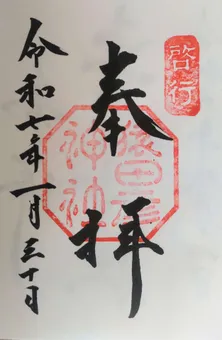 啓行
奉拝
猿田彦神社
令和七年一月三十日